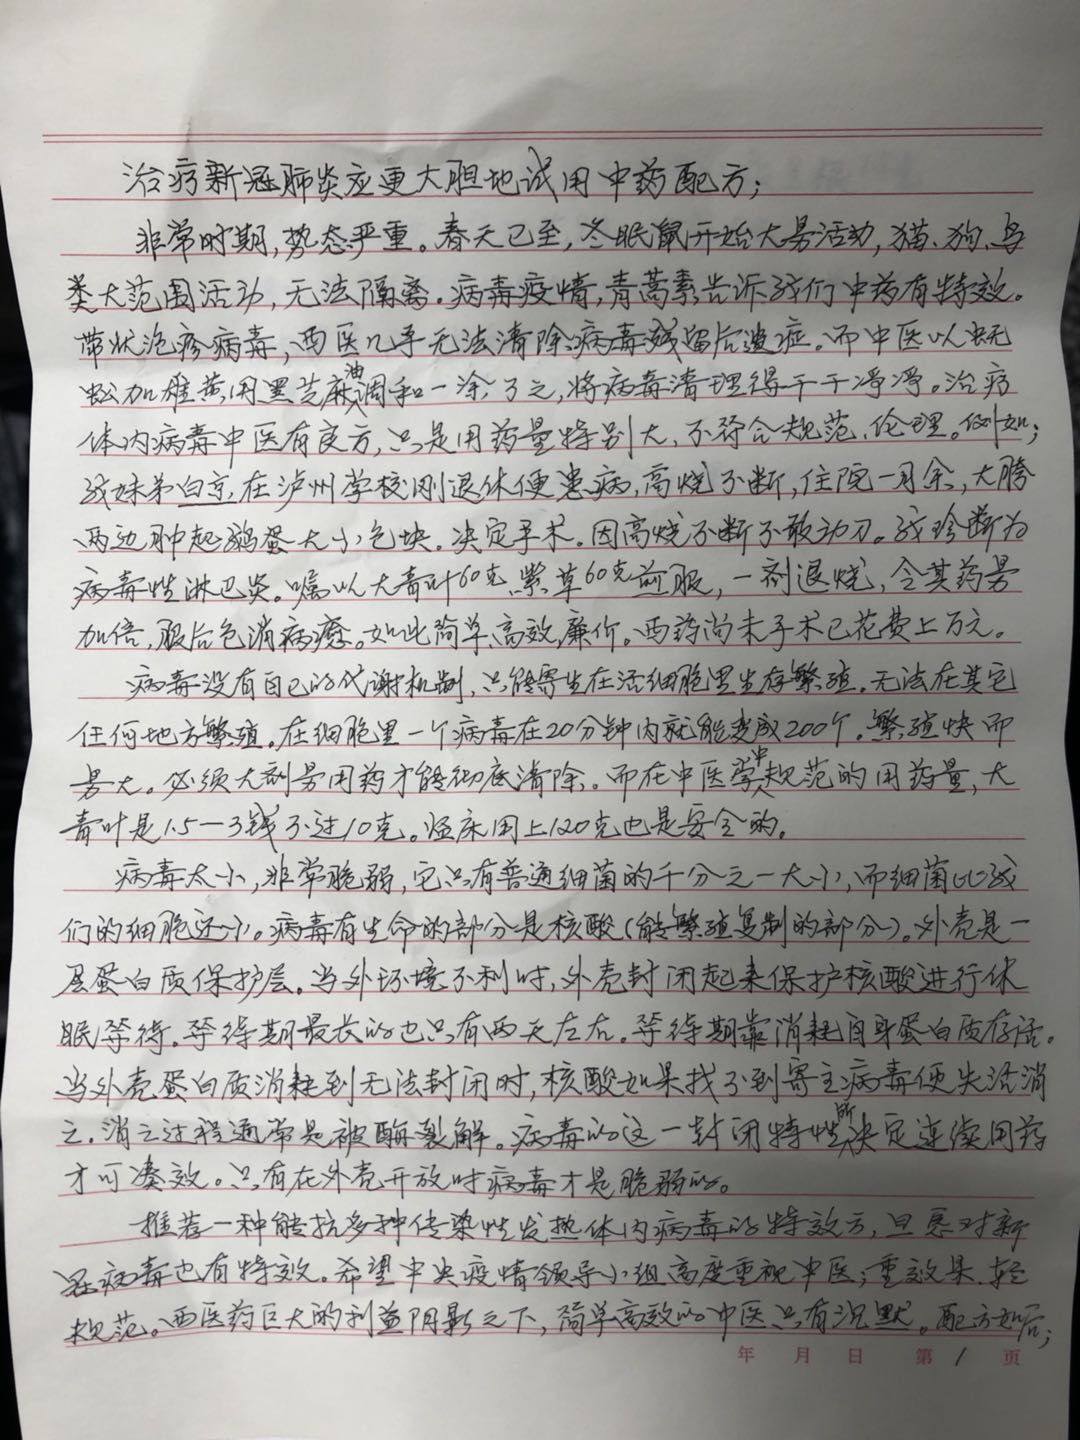 治疗新冠肺炎应更大胆地试用中药配方;
非常时期,势态严重。春天已至,冬眠鼠开始大量活动,猫、狗、鸟
类大范围活动,无法隔离。病毒疫情,青蒿素告诉我们中药有特效。
带状泡疹病毒,西医几乎无法清除病毒残留后遗症。而中医以蜈
蚣加雄黄用黑芝麻油调和一涂了之,将病毒清理得干干净净。治疗
体内病毒中医有良方,只是用药量特别大,不符合规范、伦理。例如;
我妹弟白京,在泸州学校刚退休便患病,高烧不断,住院一月余,大胯
两边肿起鹅蛋大小包块。决定手术。因高烧不断不敢动刀。我珍断为
病毒性淋巴炎。嘱以大青叶60克,紫草60克煎服,一剂退烧,令其药量
加倍,服后包消病瘥。如此简单、高效、廉价。西药尚未手术已花费上万元。
病毒没有自己的代谢机制,只能寄生在活细胞里生存繁殖。无法在其它
任何地方繁殖。在细胞里一个病毒在20分钟内就能变成200个。繁殖快而
量大。必须大剂量用药才能彻底清除。而在中医学中规范的用药量,大
青叶是1.5—3钱不过10克。临床用上120克也是安全的。
病毒太小,非常脆弱,它只有普通细菌的千分之一大小,而细菌比我
们的细胞还小。病毒有生命的部分是核酸(能繁殖复制的部分)。外壳是一
层蛋白质保护层。当外环境不利时,外壳封闭起来保护核酸进行休
眠等待。等待期最长的也只有两天左右。等待期靠消耗自身蛋白质存活。
当外壳蛋白质消耗到无法封闭时,核酸如果找不到寄主病毒便失活消
亡。消亡过程通常是被酶裂解。病毒的这一封闭特性所决定连续用药
才可凑效。只有在外壳开放时病毒才是脆弱的。
推荐一种能抗多种传染性发热体内病毒的特效方,且愿对新
冠病毒也有特效。希望中央疫情领导小组高度重视中医;重效果、轻
规范。西医药巨大的利益阴影之下,简单高效的中医只有沉默。配方如后;
年 月 日 第 1 页